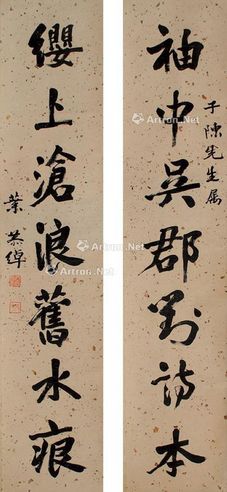 袖中吳郡新詩本
子陳先生屬
纓上滄浪舊水痕
葉恭綽
Artron.Net
Artron.Net
Artron.Net
Artron.Net